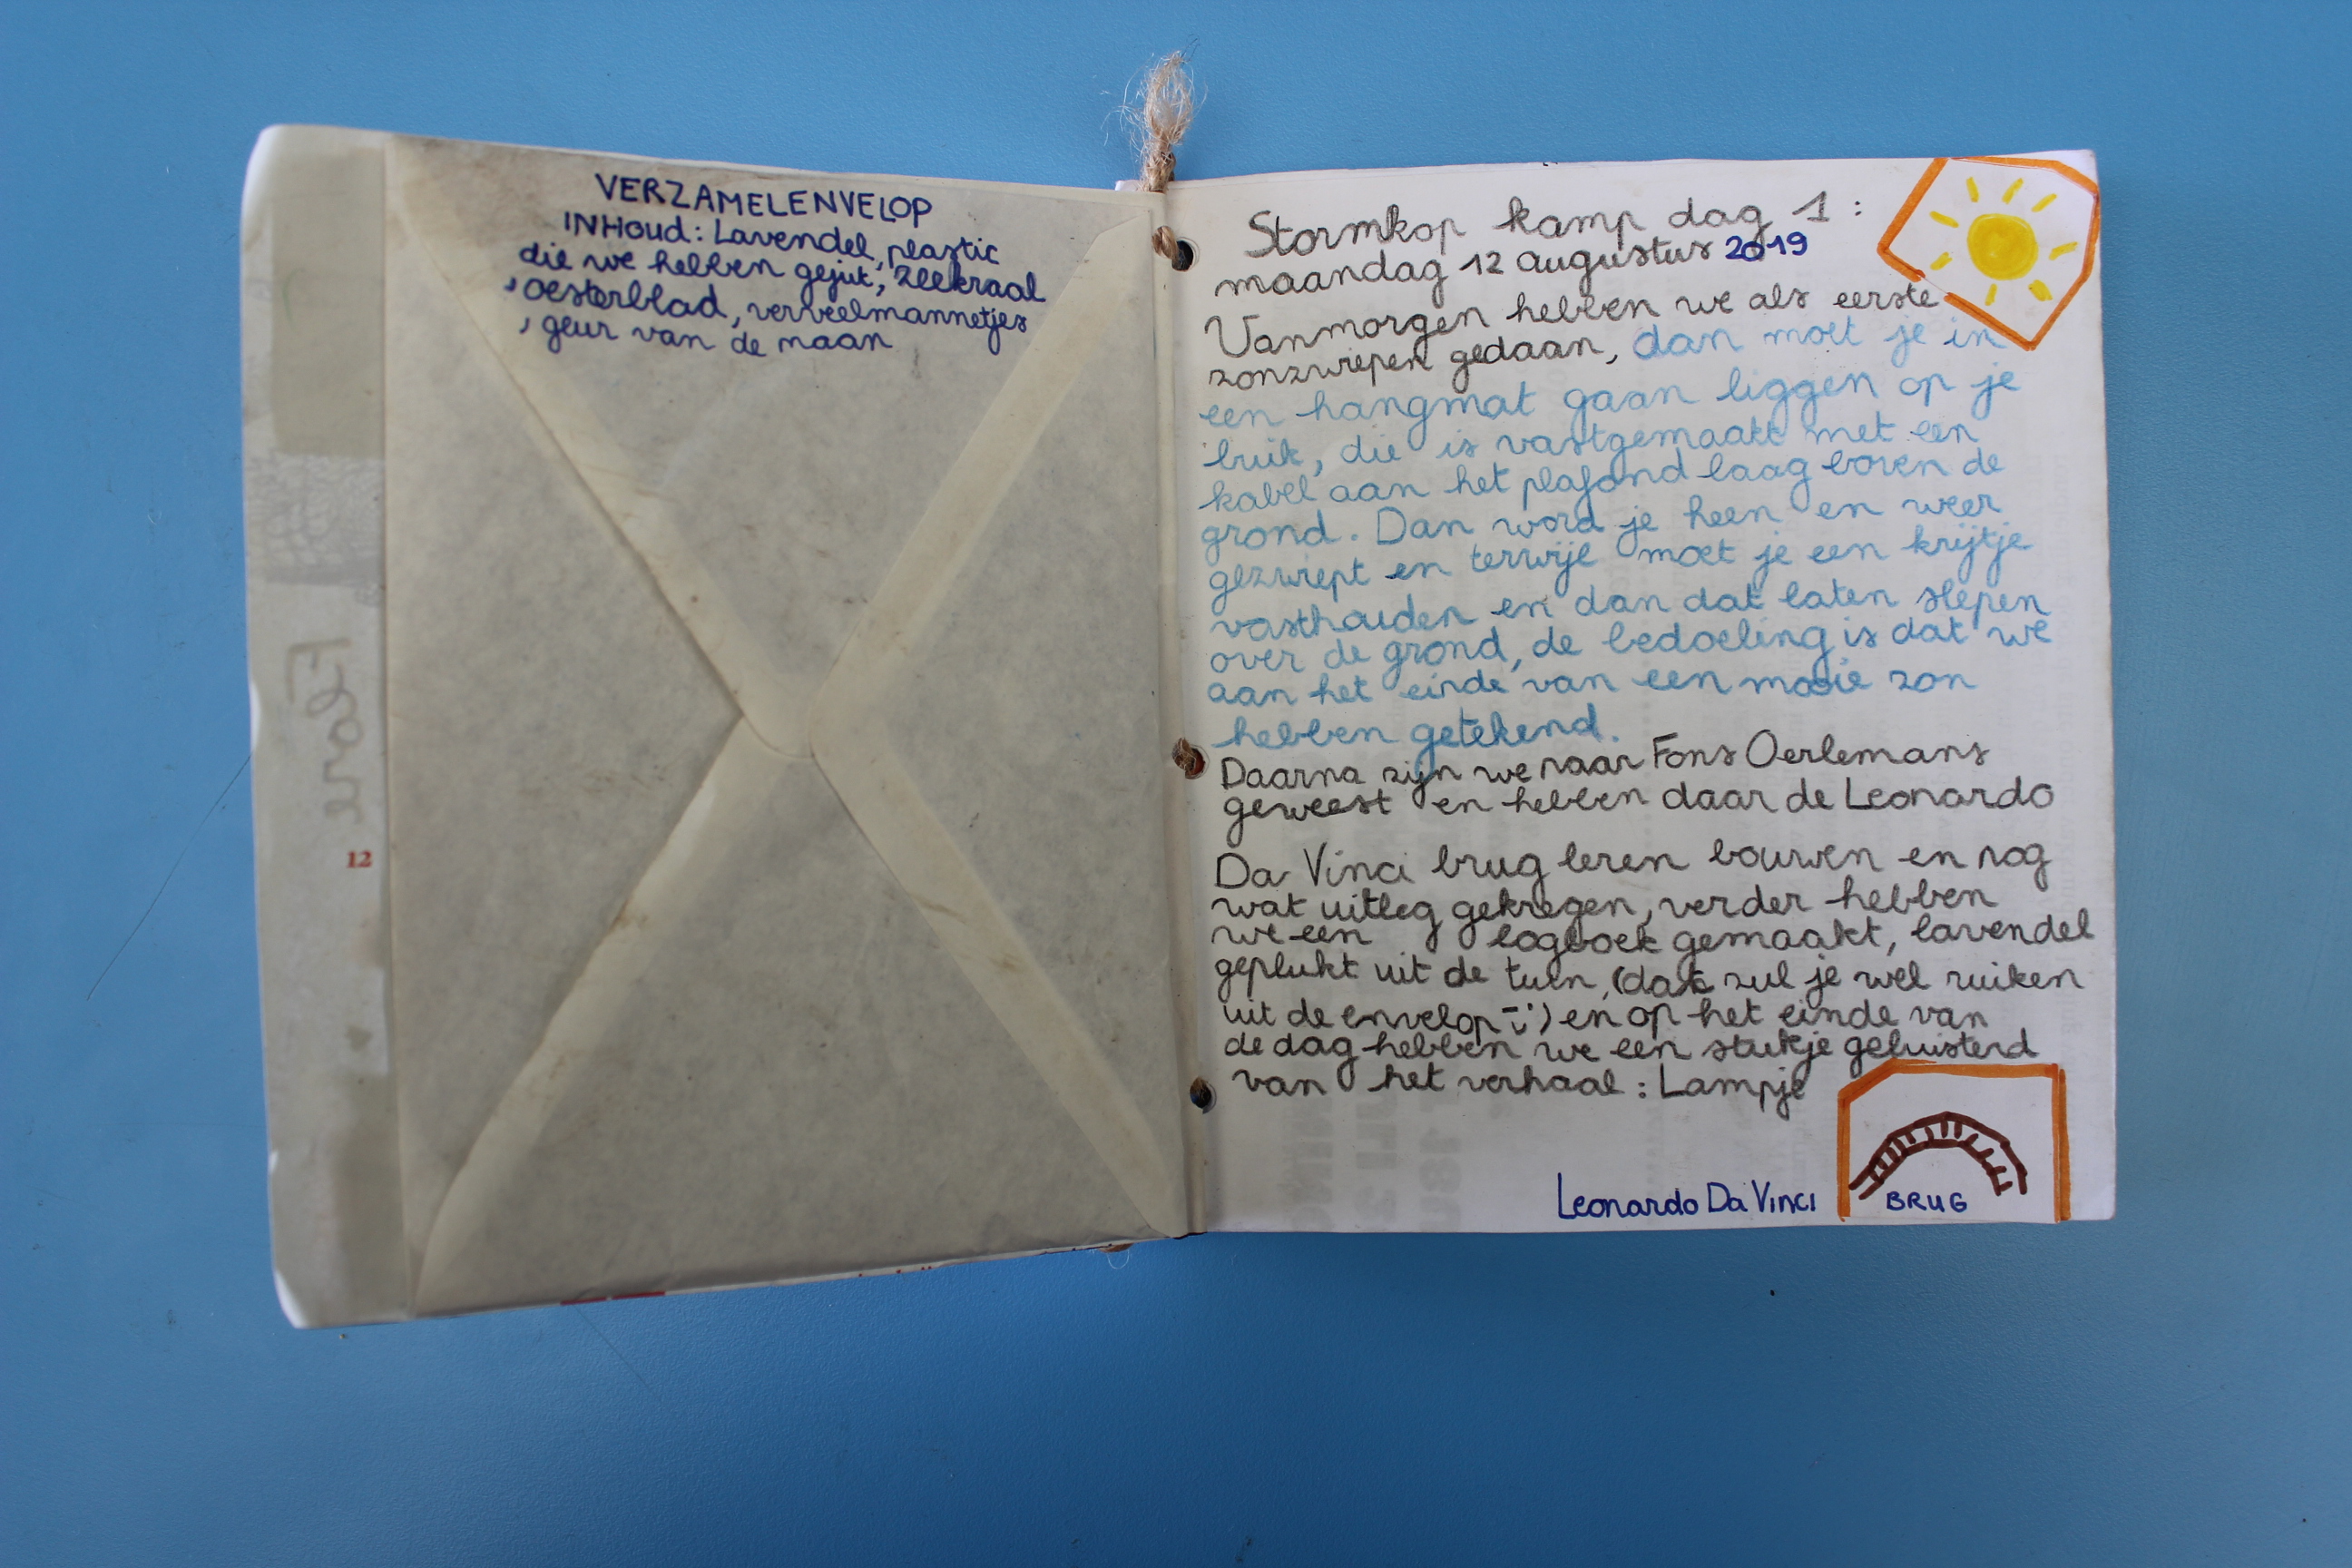 VERZAMELENVELOP
INHoud: Lavendel, plastic
die we hebben gejut, zeekraal
, oesterblad, verveelmannetjes
, geur van de maan
12
Stormkop kamp dag 1 :
maandag 12 augustus 2019
Vanmorgen hebben we als eerste
zonzwiepen gedaan, dan moet je in
een hangmat gaan liggen op je
buik, die is vastgemaakt met een
kabel aan het plafond laag boven de
grond. Dan word je heen en weer
gezwiept en terwijl moet je een krijtje
vasthouden en dan dat laten slepen
over de grond, de bedoeling is dat we
aan het einde van een mooie zon
hebben getekend.
Daarna zijn we naar Fons Oerlemans
geweest en hebben daar de Leonardo
Da Vinci brug leren bouwen en nog
wat uitleg gekregen, verder hebben
we een logboek gemaakt, lavendel
geplukt uit de tuin, (dat zul je wel ruiken
uit de envelop -;') en op het einde van
de dag hebben we een stukje geluisterd
van het verhaal : Lampje
Leonardo Da Vinci BRUG